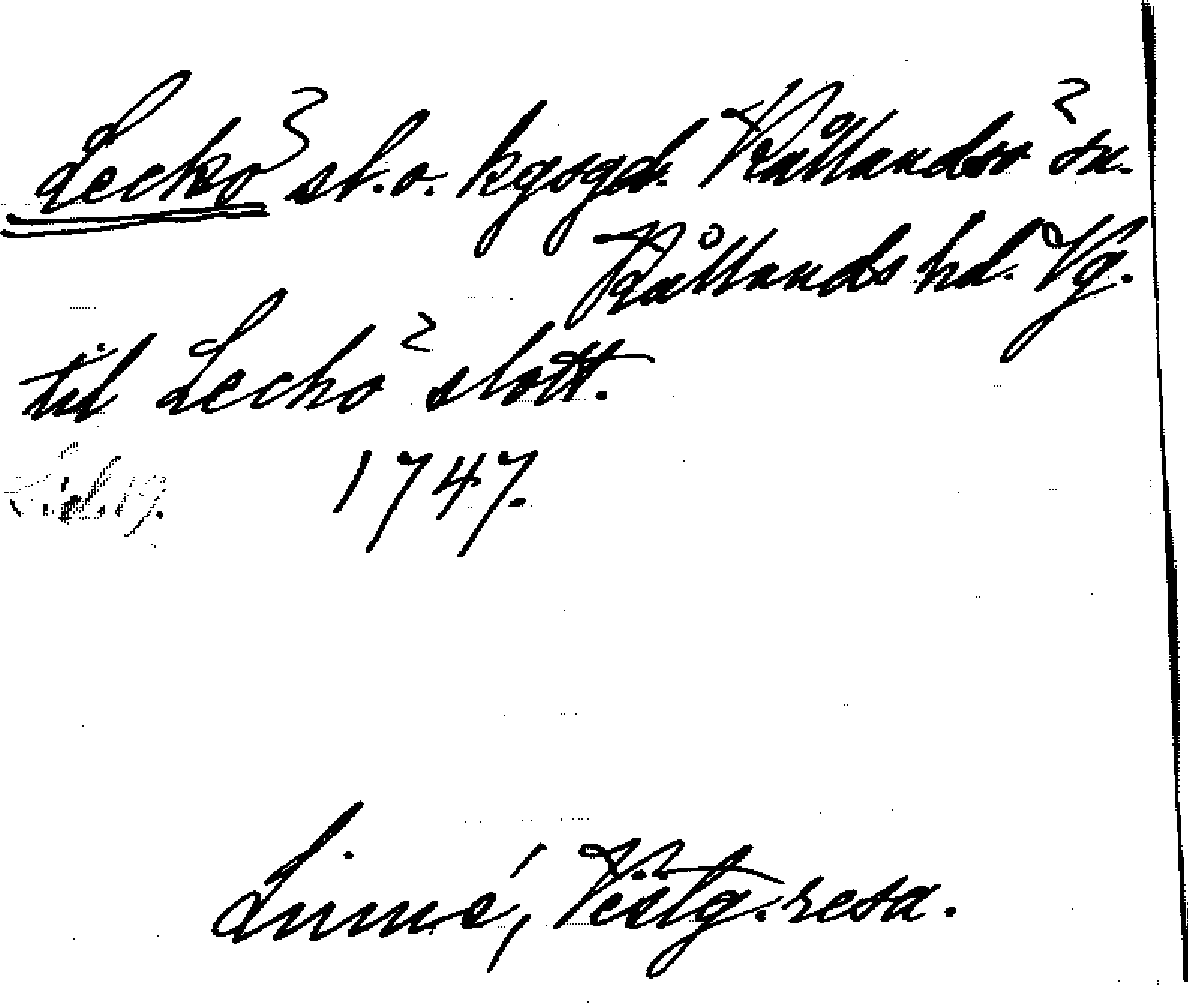 Leckö sl. o. kgsgd. Kållandsö sn.
Kållands hd. Vg.
til Leckö slott.
1747.
Linné, Västg. resa.